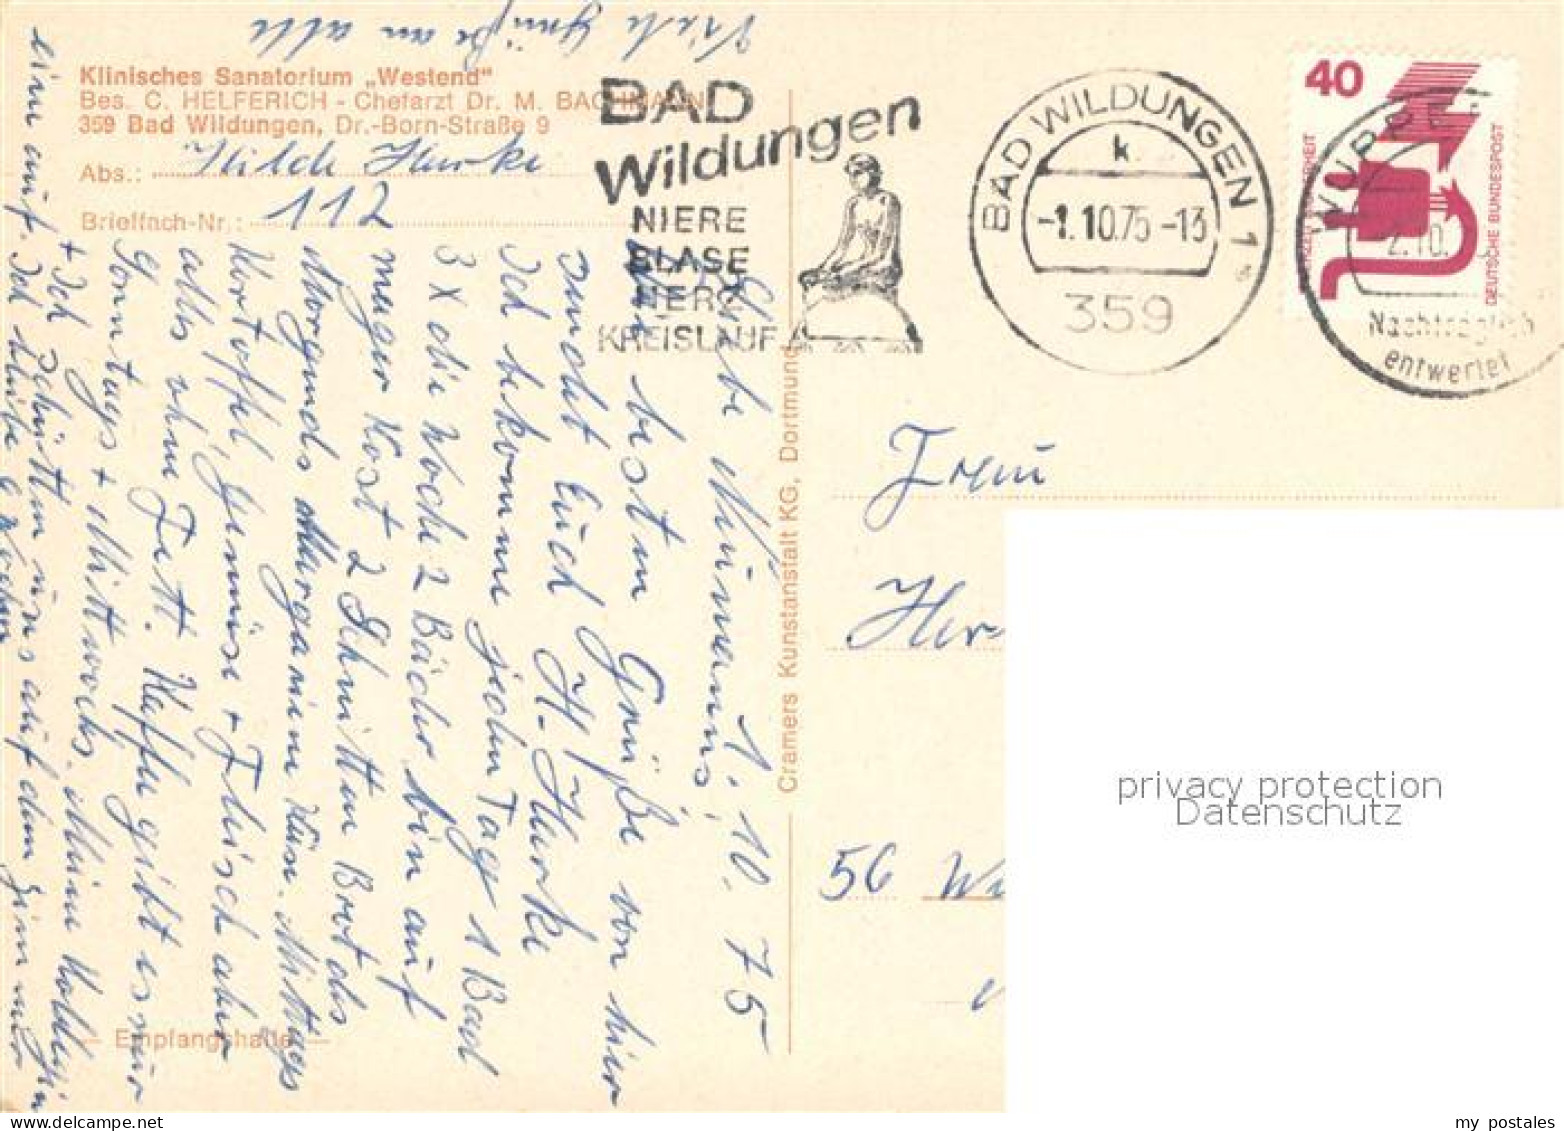 Viele Grüße an alle
Klinisches Sanatorium „Westend"
Bes. C. HELFERICH - Chefarzt Dr. M. BACHMANN
359 Bad Wildungen, Dr.-Born-Straße 9
Abs.: Hilde Harke
Brieffach-Nr.: 112
BAD
Wildungen
NIERE
BLASE
HERZ
KREISLAUF
BAD WILDUNGEN 1
k
-1.10.75-13
359
40
DEUTSCHE BUNDESPOST
WUPPE
2.10.
Nachträglich
entwertet
1. 10. 75
Liebe
besten Grüße von hier
sendet Euch H. Harke
Ich bekomme jeden Tag 1 Bad
3 x die Woche 2 Bäder, bin auf
mager Kost 2 Schnitten Brot des
Morgends Margarine Käse. Mittags
Kartoffel, Gemüse + Fleisch aber
alles ohne Fett. Kaffe gibt es nur
Sonntags + Mittwochs. Meine Kollegin
+ Ich schütten uns auf dem Zimmer
einen auf. Ich bleibe 6 Wochen
Cramers Kunstanstalt KG, Dortmund
— Empfangshalle —
Frau
Her
56 Wu
privacy protection
Datenschutz
my postales